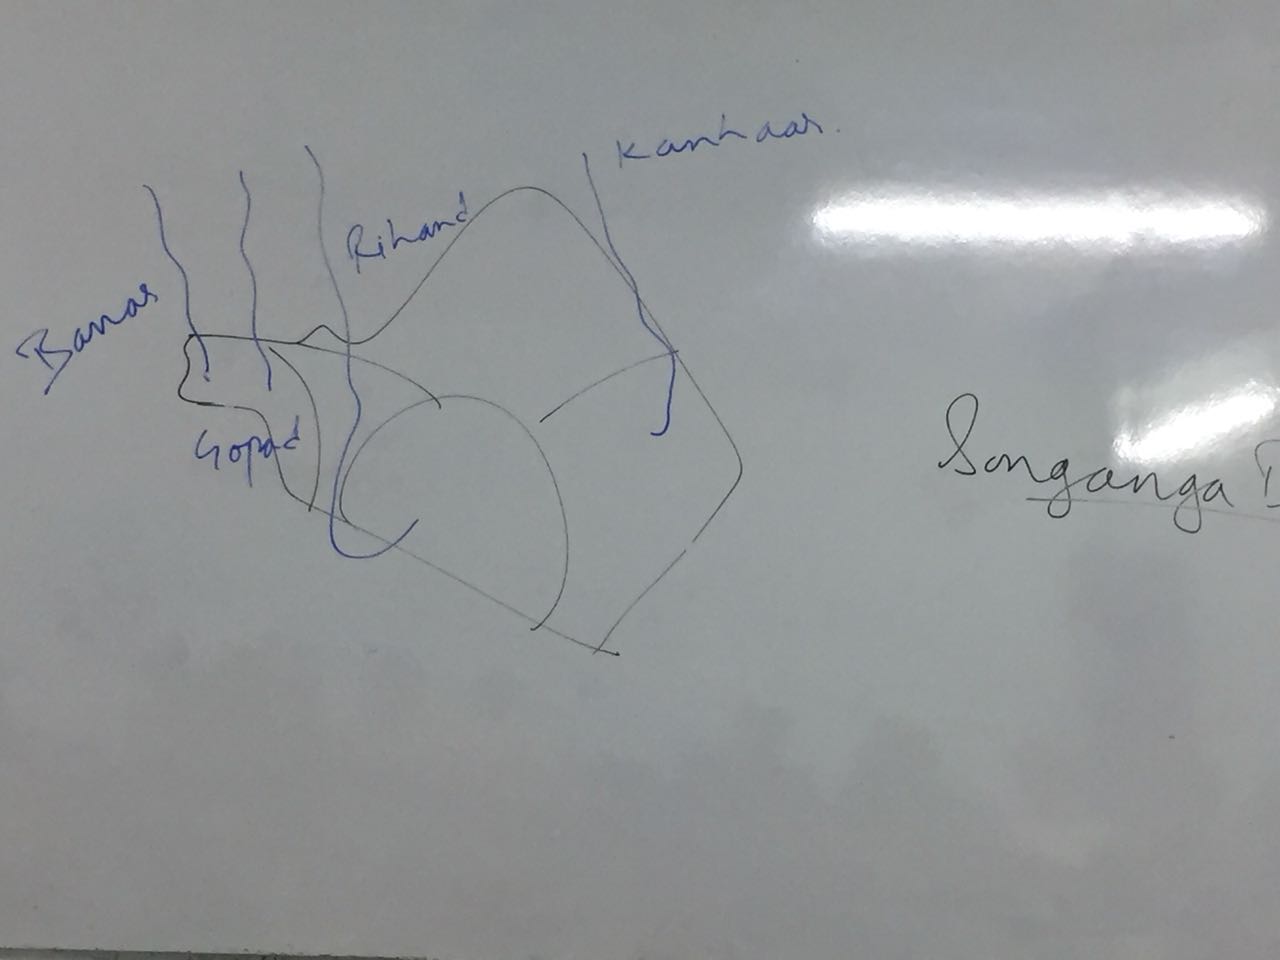 Kanhaar.
Rihand
Banas
Gopad
Songanga